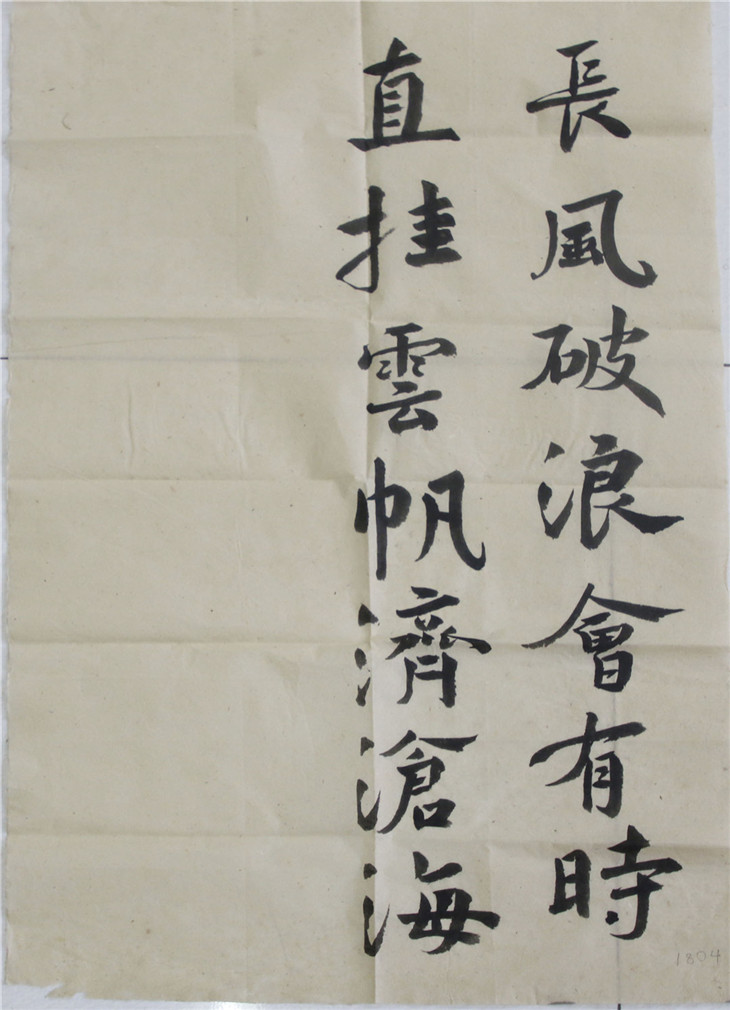 長風破浪會有時
直挂雲帆濟滄海
1804